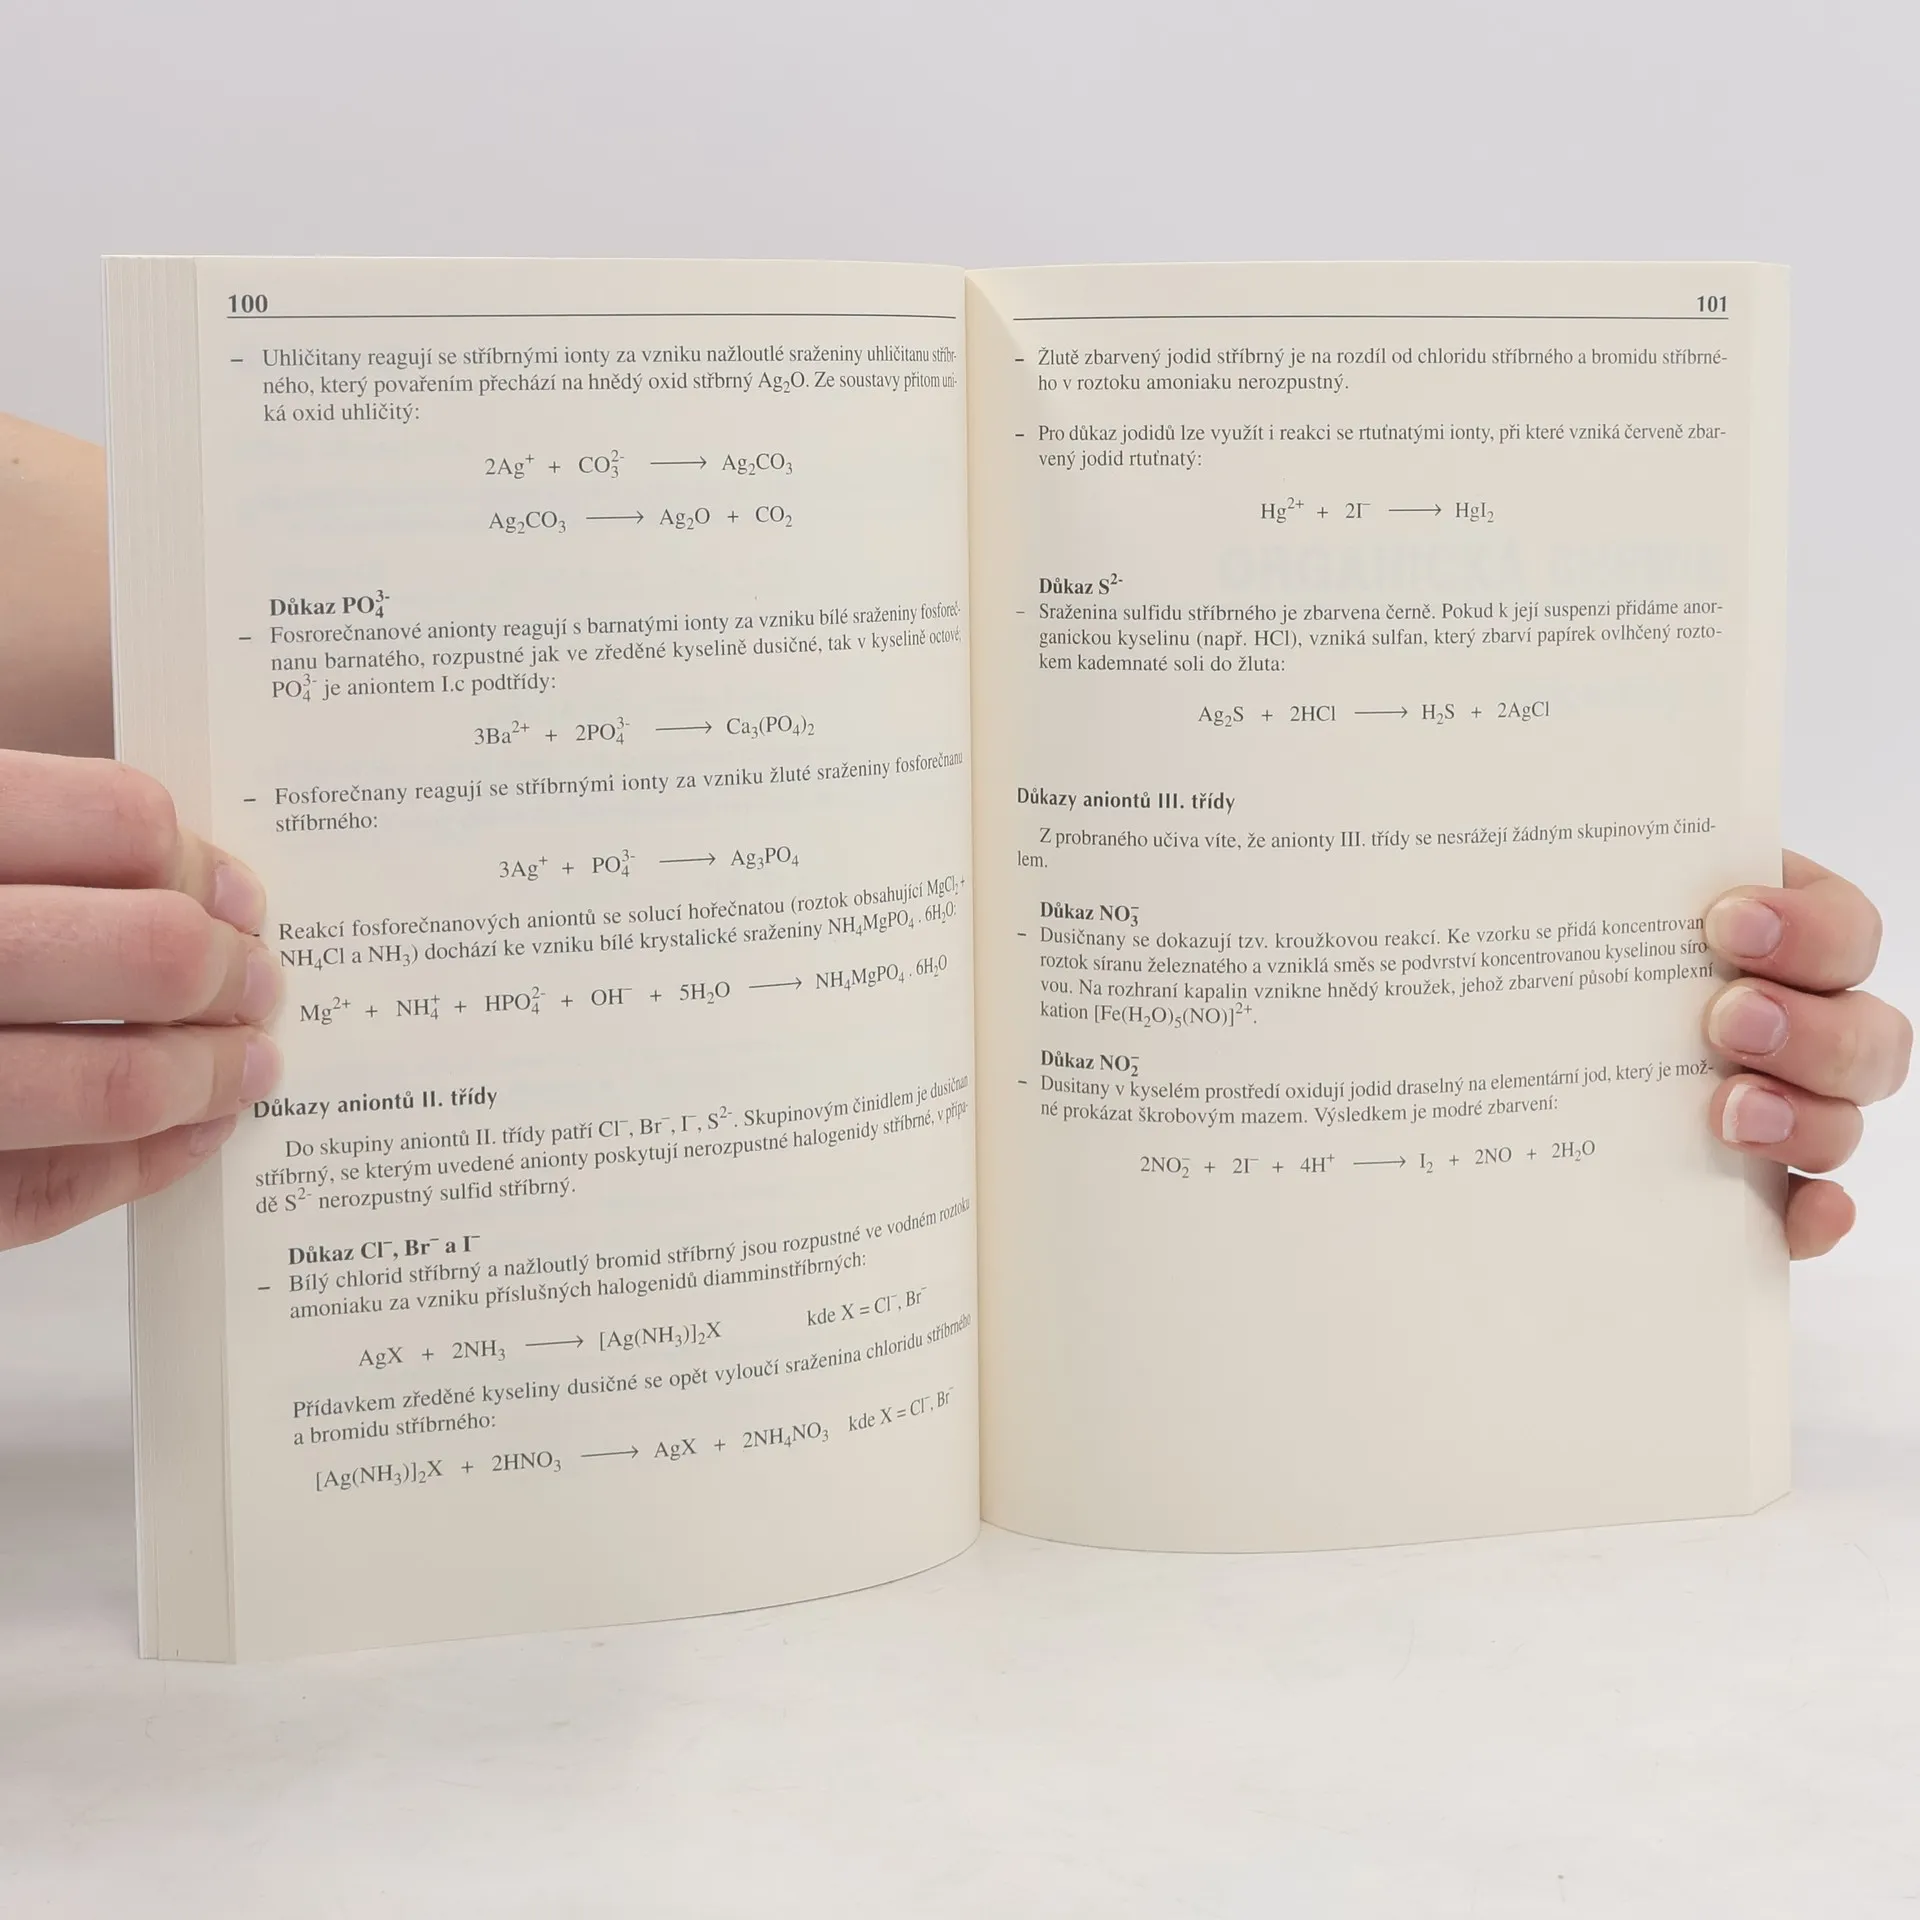 100
– Uhličitany reagují se stříbrnými ionty za vzniku nažloutlé sraženiny uhličitanu stříbr-
ného, který povařením přechází na hnědý oxid střbrný Ag₂O. Ze soustavy přitom uni-
ká oxid uhličitý:
2Ag⁺ + CO₃²⁻ ⟶ Ag₂CO₃
Ag₂CO₃ ⟶ Ag₂O + CO₂
Důkaz PO₄³⁻
– Fosrorečnanové anionty reagují s barnatými ionty za vzniku bílé sraženiny fosforeč-
nanu barnatého, rozpustné jak ve zředěné kyselině dusičné, tak v kyselině octové;
PO₄³⁻ je aniontem I.c podtřídy:
3Ba²⁺ + 2PO₄³⁻ ⟶ Ca₃(PO₄)₂
– Fosforečnany reagují se stříbrnými ionty za vzniku žluté sraženiny fosforečnanu
stříbrného:
3Ag⁺ + PO₄³⁻ ⟶ Ag₃PO₄
– Reakcí fosforečnanových aniontů se solucí hořečnatou (roztok obsahující MgCl₂ +
NH₄Cl a NH₃) dochází ke vzniku bílé krystalické sraženiny NH₄MgPO₄ . 6H₂O:
Mg²⁺ + NH₄⁺ + HPO₄²⁻ + OH⁻ + 5H₂O ⟶ NH₄MgPO₄ . 6H₂O
Důkazy aniontů II. třídy
Do skupiny aniontů II. třídy patří Cl⁻, Br⁻, I⁻, S²⁻. Skupinovým činidlem je dusičnan
stříbrný, se kterým uvedené anionty poskytují nerozpustné halogenidy stříbrné, v přípa-
dě S²⁻ nerozpustný sulfid stříbrný.
Důkaz Cl⁻, Br⁻ a I⁻
– Bílý chlorid stříbrný a nažloutlý bromid stříbrný jsou rozpustné ve vodném roztoku
amoniaku za vzniku příslušných halogenidů diamminstříbrných:
AgX + 2NH₃ ⟶ [Ag(NH₃)]₂X kde X = Cl⁻, Br⁻
Přídavkem zředěné kyseliny dusičné se opět vyloučí sraženina chloridu stříbrného
a bromidu stříbrného:
[Ag(NH₃)]₂X + 2HNO₃ ⟶ AgX + 2NH₄NO₃ kde X = Cl⁻, Br⁻
101
– Žlutě zbarvený jodid stříbrný je na rozdíl od chloridu stříbrného a bromidu stříbrné-
ho v roztoku amoniaku nerozpustný.
– Pro důkaz jodidů lze využít i reakci se rtuťnatými ionty, při které vzniká červeně zbar-
vený jodid rtuťnatý:
Hg²⁺ + 2I⁻ ⟶ HgI₂
Důkaz S²⁻
– Sraženina sulfidu stříbrného je zbarvena černě. Pokud k její suspenzi přidáme anor-
ganickou kyselinu (např. HCl), vzniká sulfan, který zbarví papírek ovlhčený rozto-
kem kademnaté soli do žluta:
Ag₂S + 2HCl ⟶ H₂S + 2AgCl
Důkazy aniontů III. třídy
Z probraného učiva víte, že anionty III. třídy se nesrážejí žádným skupinovým činid-
lem.
Důkaz NO₃⁻
– Dusičnany se dokazují tzv. kroužkovou reakcí. Ke vzorku se přidá koncentrovan
roztok síranu železnatého a vzniklá směs se podvrství koncentrovanou kyselinou síro-
vou. Na rozhraní kapalin vznikne hnědý kroužek, jehož zbarvení působí komplexní
kation [Fe(H₂O)₅(NO)]²⁺.
Důkaz NO₂⁻
– Dusitany v kyselém prostředí oxidují jodid draselný na elementární jod, který je mož-
né prokázat škrobovým mazem. Výsledkem je modré zbarvení:
2NO₂⁻ + 2I⁻ + 4H⁺ ⟶ I₂ + 2NO + 2H₂O